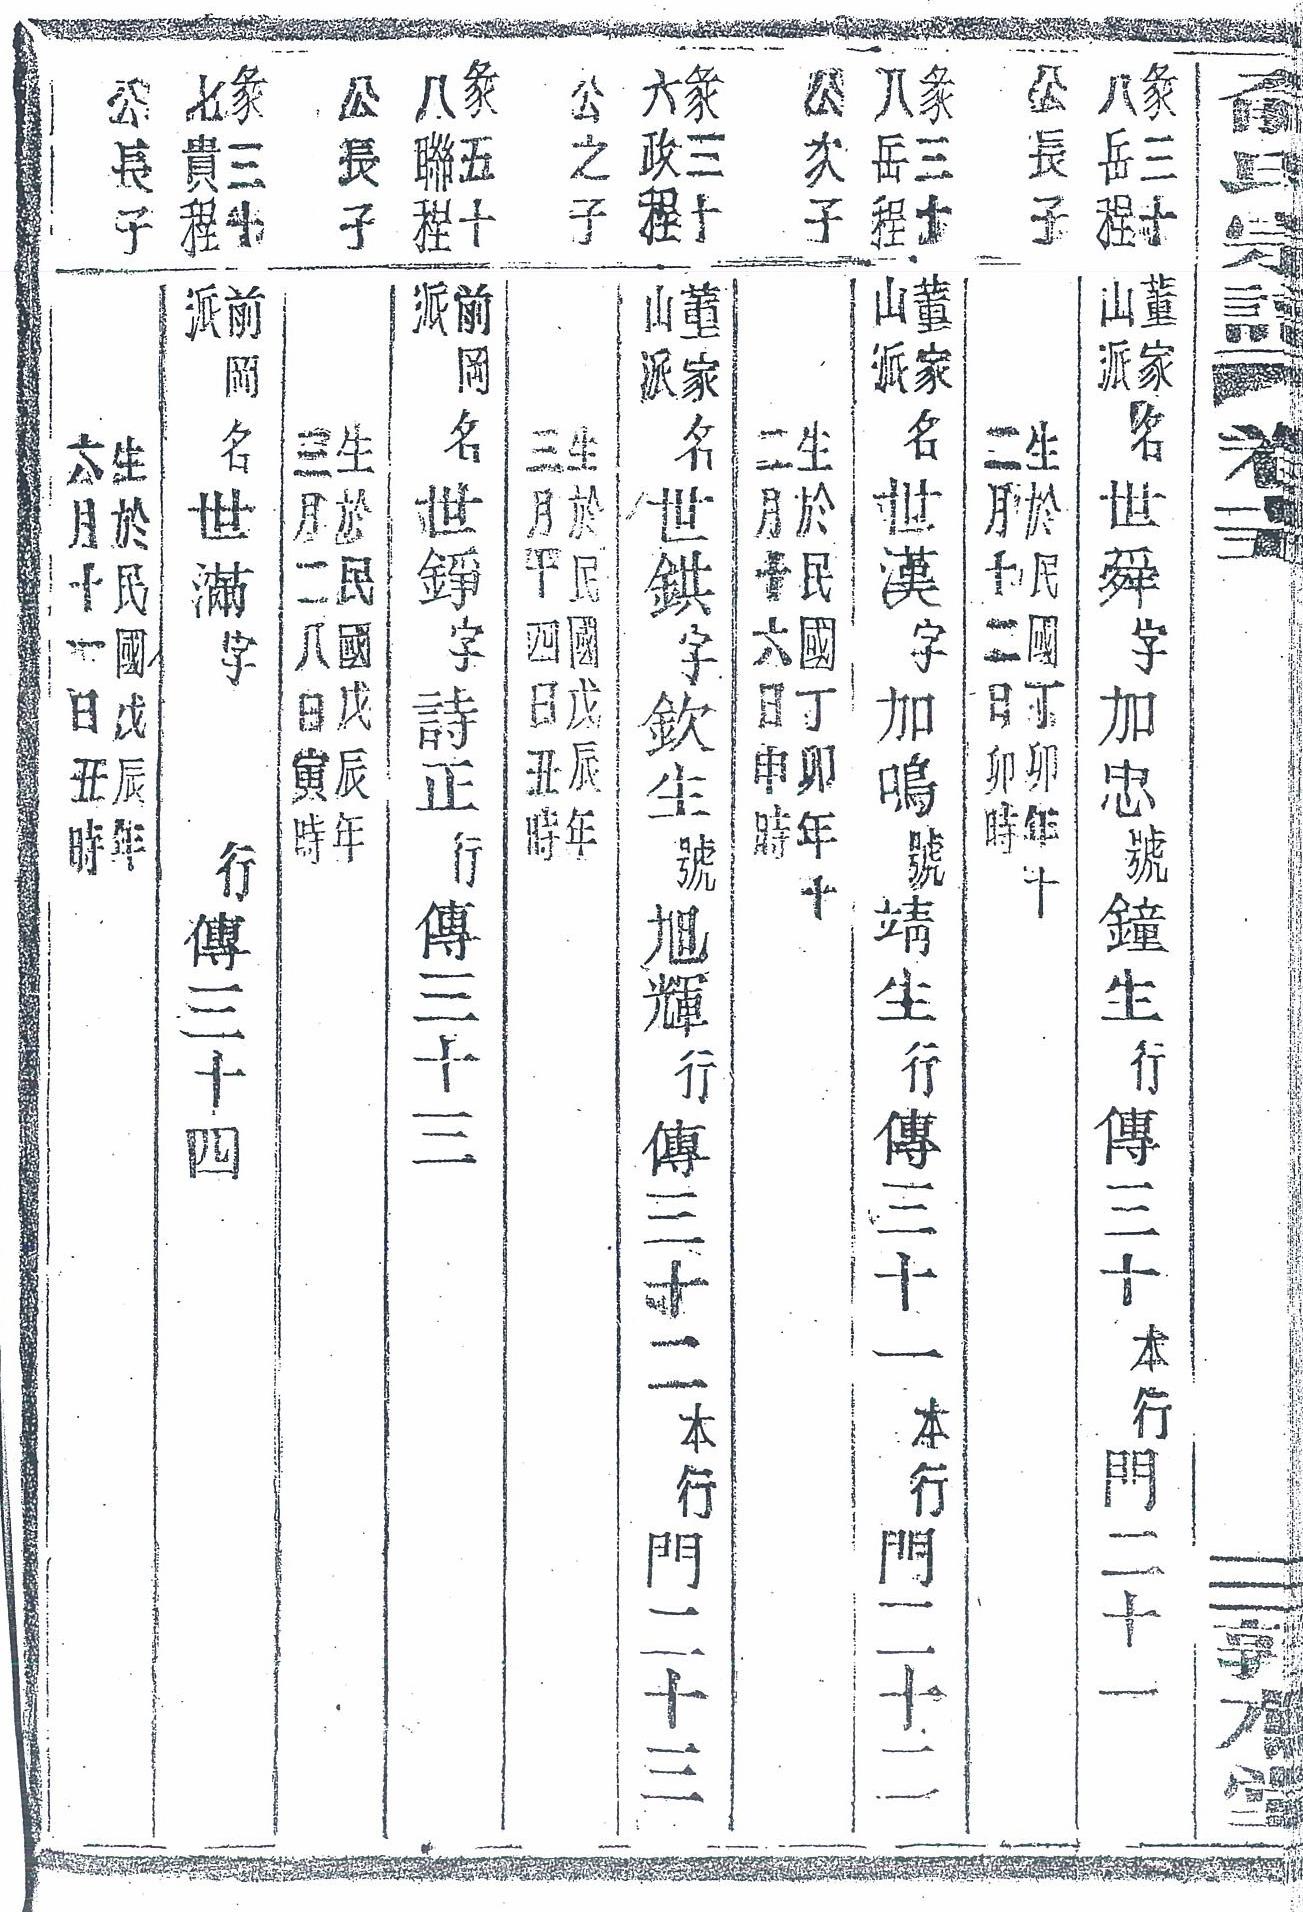 氏宗譜 卷三
彖三十八岳程公長子
董家山派 名世舜字加忠號鐘生行傳三十 本行門二十一
生於民國丁卯年十二月十二日卯時
彖三十八岳程公次子
董家山派 名世漢字加鳴號靖生行傳三十一 本行門二十二
生於民國丁卯年十二月十六日申時
彖三十六政程公之子
董家山派 名世鉷字欽生號旭輝行傳三十二 本行門二十三
生於民國戊辰年三月十四日丑時
彖五十八聯程公長子
前岡派 名世錚字詩正行傳三十三
生於民國戊辰年三月二八日寅時
彖三十七貴程公長子
前岡派 名世滿字 行傳三十四
生於民國戊辰年六月十一日丑時